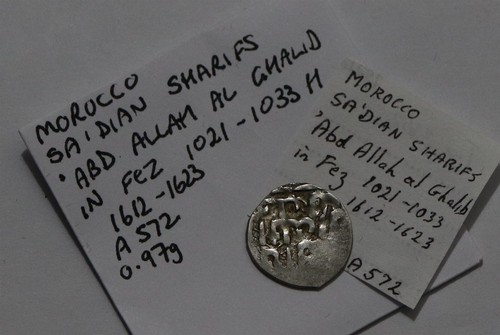 MOROCCO
SA'DIAN SHARIFS
'ABD ALLAH AL GHALID
IN FEZ 1021-1033 H
1612-1623
A 572
0.97g
MOROCCO
SA'DIAN SHARIFS
'Abd Allah al Ghalib
in Fez 1021-1033
1612-1623
A 572